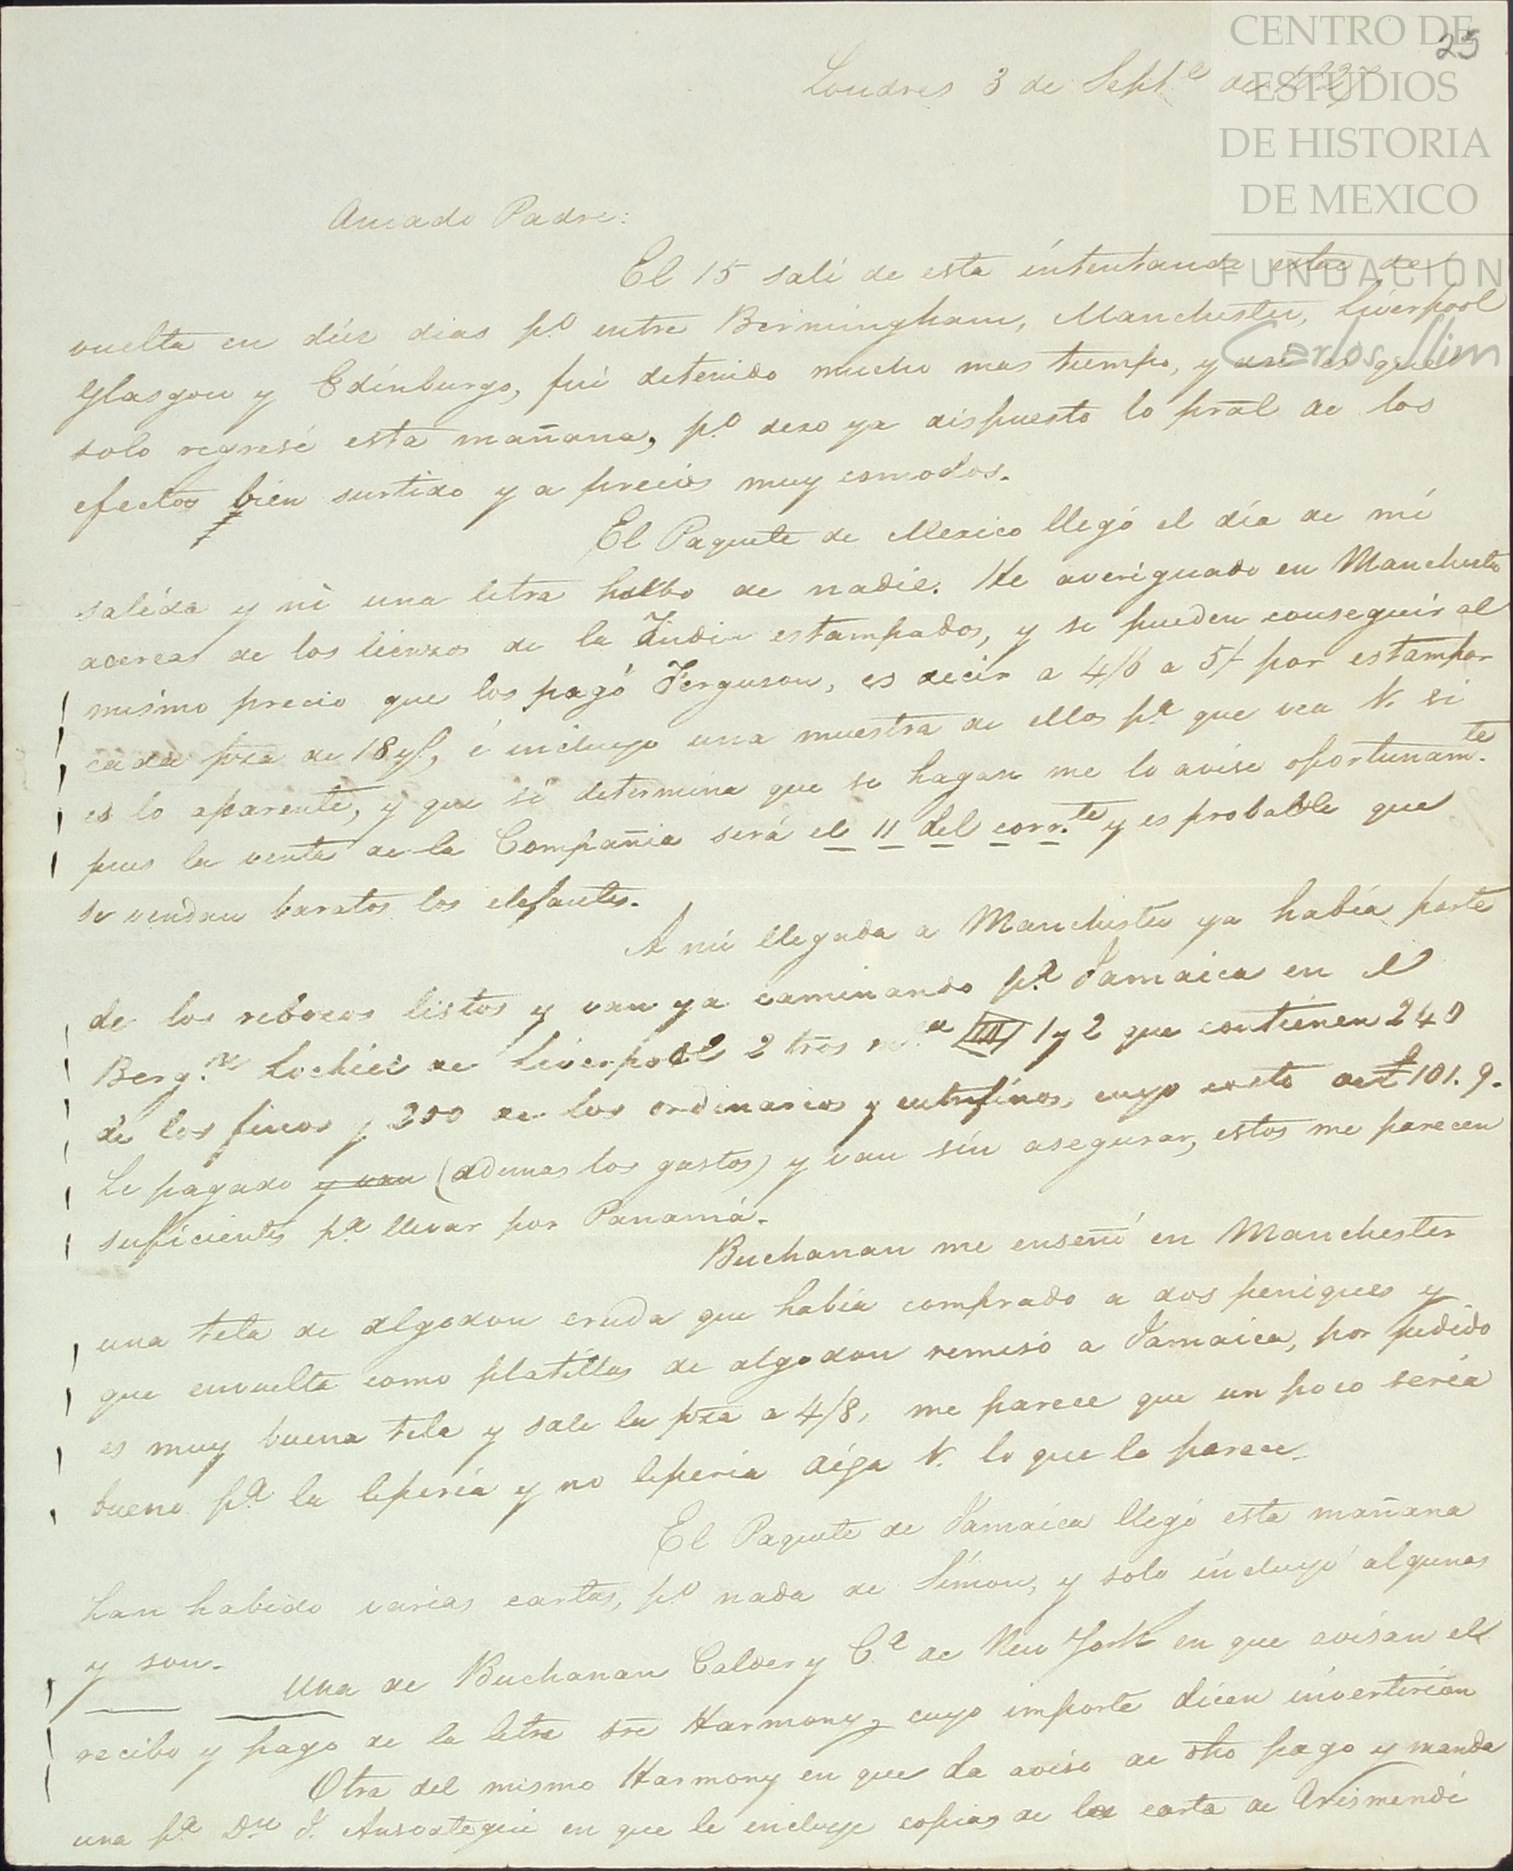 CENTRO DE
ESTUDIOS
DE HISTORIA
DE MEXICO
FUNDACION
Carlos Slim
25
Londres 3 de Sept.e de
Amado Padre:
El 15 salí de esta intentando estar de
vuelta en diéz dias p.o entre Bermingham, Manchester, Liverpool
Glasgow y Edinburgo, fuí detenido mucho mas tiempo, y asi es que
solo regresé esta mañana, p.o dexo ya dispuesto lo pral de los
efectos bien surtido y a precios muy comodos.
El Paquete de Mexico llegó el día de mi
salida y ni una letra hubo de nadie. He averiguado en Manchester
acerca de los lienzos de la India estampados, y se pueden conseguir al
mismo precio que los pagó Ferguson, es decir a 4/6 a 5/ por estampar
cada pza de 18 y.s, é incluyo una muestra de ellos p.a que vea V. si
es lo aparente, y que si determina que se hagan me lo avise oportunam.te
pues la venta de la Compañia será el 11 del corr.te y es probable que
se vendan baratos los elefantes.
A mi llegada a Manchester ya había parte
de los rebozos listos y van ya caminando p.a Jamaica en el
Berg.n Lochiel de Liverpool 2 tros 1 y 2 que contienen 240
de los finos y 200 de los ordinarios y entrefinos, cuyo costo de £101.9.
he pagado y van (ademas los gastos) y van sin asegurar, estos me parecen
suficientes p.a llevar por Panamá.
Buchanan me enseñó en Manchester
una tela de algodon cruda que había comprado a dos peniques y
que envuelta como platillas de algodon remisó a Jamaica, por pedido
es muy buena tela y sale la pza a 4/8, me parece que un poco sería
bueno p.a la lepería y no lepería diga V. lo que le parece.
El Paquete de Jamaica llegó esta mañana
han habido varias cartas, p.o nada de Simon, y solo incluyo algunas
y son.
Una de Buchanan Calder y C.a de New York en que avisan el
recibo y pago de la letra sre Harmony, cuyo importe dicen invertirían
Otra del mismo Harmony en que da aviso de dho pago y manda
una p.a Dn J. Ansoategui en que le incluye copias de la carta de Arismendi